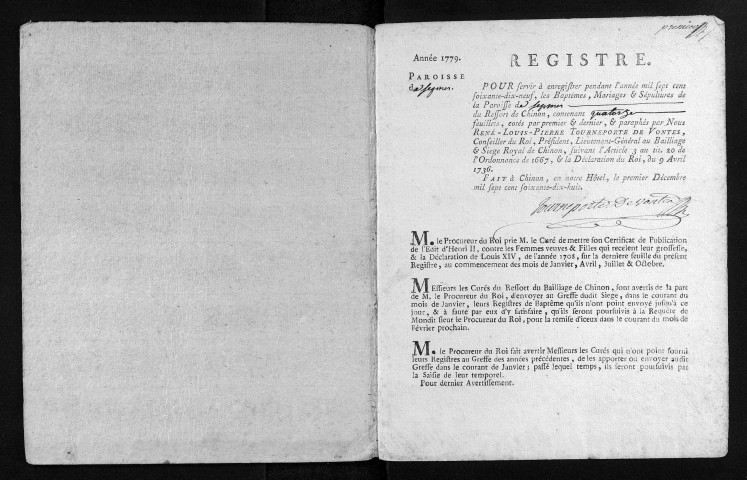 premier
Année 1779.
REGISTRE.
PAROISSE
de Seymer.
POUR servir à enregistrer pendant l'année mil sept cent
soixante-dix-neuf, les Baptêmes, Mariages & Sépultures de
la Paroisse de Seymer
du Ressort de Chinon, contenant quatorze
feuillets, cotés par premier & dernier, & paraphés par Nous
RENÉ-LOUIS-PIERRE TOURNEPORTE DE VONTES,
Conseiller du Roi, Président, Lieutenant-Général au Bailliage
& Siege Royal de Chinon, suivant l'Article 3 au tit. 20 de
l'Ordonnance de 1667, & la Déclaration du Roi, du 9 Avril
1736.
FAIT à Chinon, en notre Hôtel, le premier Décembre
mil sept cent soixante-dix-huit.
Tourneporte De vontes
M. le Procureur du Roi prie M. le Curé de mettre son Certificat de Publication
de l'Edit d'Henri II, contre les Femmes veuves & Filles qui recelent leur grossesse,
& la Déclaration de Louis XIV, de l'année 1708, sur la derniere feuille du présent
Registre, au commencement des mois de Janvier, Avril, Juillet & Octobre.
MEssieurs les Curés du Ressort du Bailliage de Chinon, sont avertis de la part
de M. le Procureur du Roi, d'envoyer au Greffe dudit Siege, dans le courant du
mois de Janvier, leurs Registres de Baptême qu'ils n'ont point envoyé jusqu'à ce
jour, & à faute par eux d'y satisfaire, qu'ils seront poursuivis à la Requête de
Mondit sieur le Procureur du Roi, pour la remise d'iceux dans le courant du mois de
Février prochain.
M. le Procureur du Roi fait avertir Messieurs les Curés qui n'ont point fourni
leurs Registres au Greffe des années précédentes, de les apporter ou envoyer audit
Greffe dans le courant de Janvier; passé lequel temps, ils seront poursuivis par
la Saisie de leur temporel.
Pour dernier Avertissement.